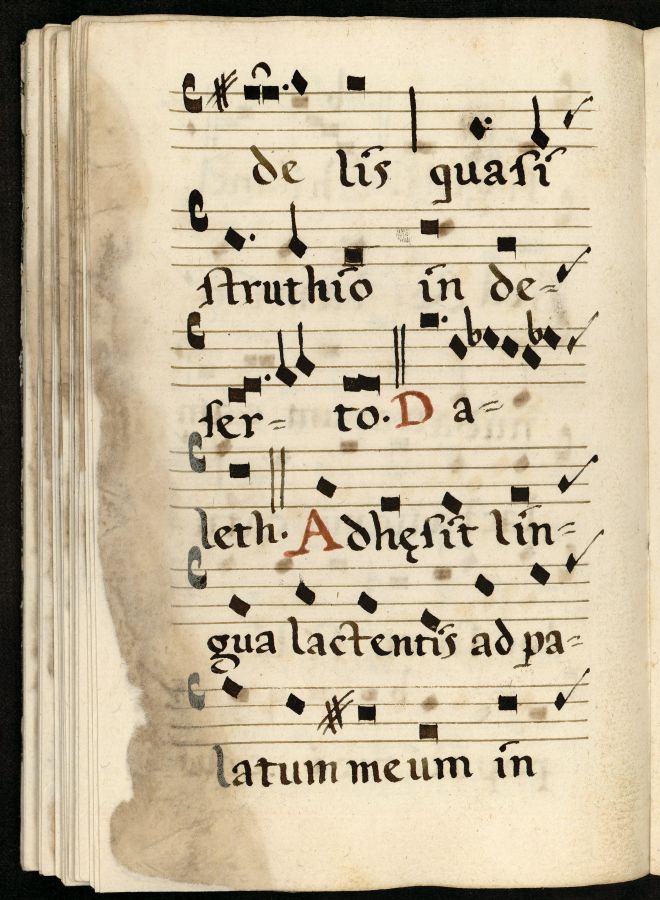 de lis quasi
struthio in de=
ser= to. D a=
leth. Adhęsit lin=
gua lactentis ad pa=
latum meum in